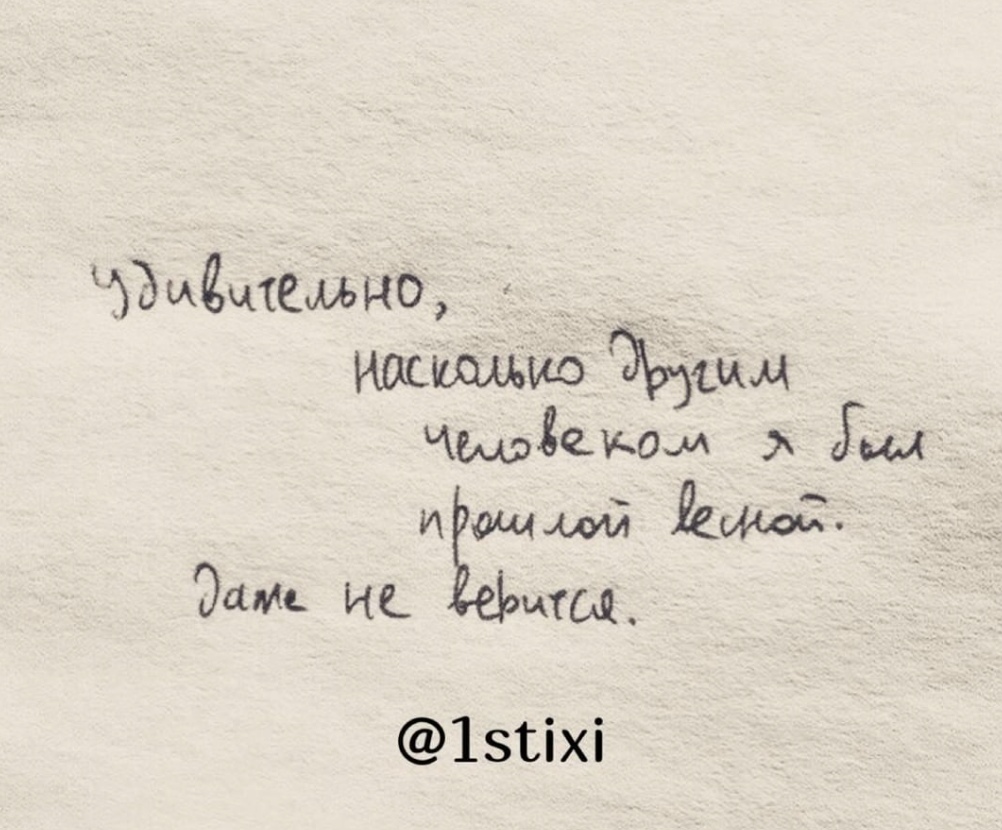 удивительно,
насколько другим
человеком я был
прошлой весной.
Даже не верится.
@1stixi